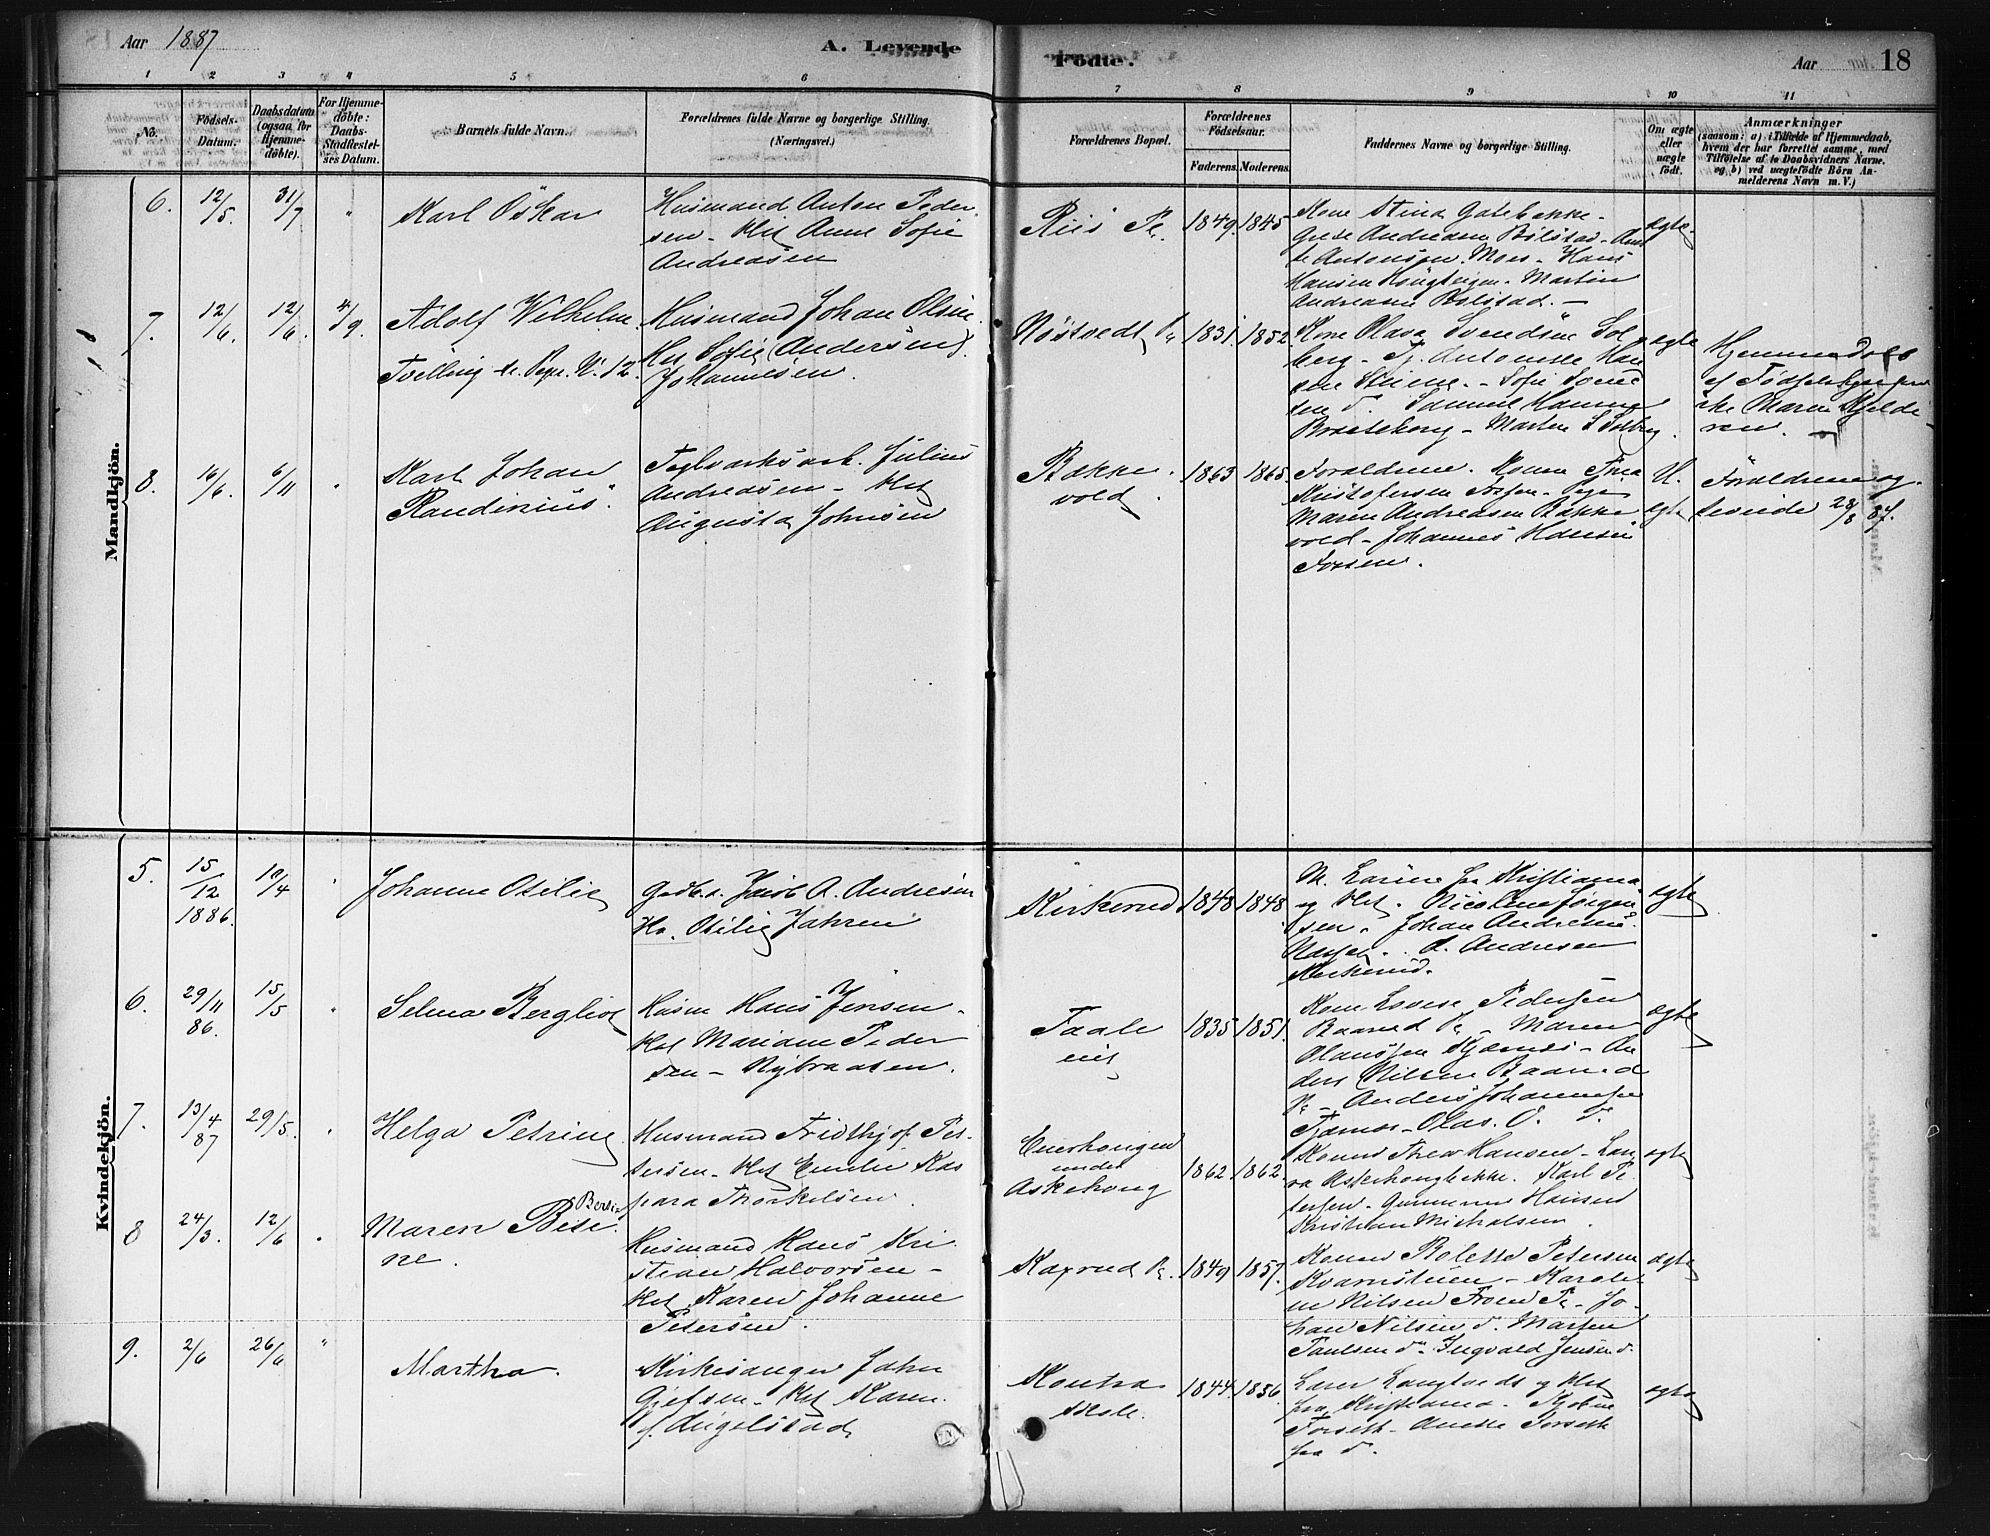 Aar 1887
A. Levende
Födte.
Aar
18
1 2 3 4 5 6 7 8 9 10 11
No.
Födsels-
Datum.
Daabsdatum
(ogsaa for
Hjemme-
döbte).
For Hjemme-
döbte:
Daabs-
Stadfæstel-
ses Datum.
Barnets fulde Navn.
Forældrenes fulde Navne og borgerlige Stilling.
(Næringsvei.)
Forældrenes Bopæl.
Forældrenes
Födselsaar.
Faderens. Moderens.
Faddernes Navne og borgerlige Stilling.
Om ægte
eller
uægte
födt.
Anmærkninger
(saasom: a) i Tilfælde af Hjemmedaab,
hvem der har forrettet samme, med
Tilföielse af to Daabsvidners Navne.
og b) ved uægtefödte Börn An-
melderens Navn m. V.)
Mandkjön.
6. 12/5. 31/7. "
Karl Oskar
Husmand Anton Peder-
sen - Hst Anne Sofie
Andreasen
Riis Pe. 1849. 1845
Kone Stina Gatebakke-
Grete Andreasen Bölstad-
Antonsen Mor- Hans
Hansen Martin
Andreasen Bölstad. -
ægte
7. 12/6. 12/6. 4/9.
Adolf Wilhelm
Tvilling se Pige N. 12.
Husmand Johan Olsen
Hst Sofie (Andersen)
Johannesen.
Nöstvedt 1831. 1852.
Kone Olava Svendsen Sol
berg- Pj. Antonette Han
sen - Sofie Svend
sen d. Samuel Hansen
Braateberg - Marten S Solberg.
ægte
Hjemmedöbt
af Födselshjælper
ske Maren Kjelde
ren.
8. 16/6. 6/11 "
Karl Johan
Randinius.
Teglværksarb. Julius
Andreasen - Hst
Augusta Johnsen
Bakke
vold. 1863 1865.
Forældrene. Konen Thea
Kristofersen Fossen- Pige
Maren Andreasen Bakke
vold- Johannes Hansen
Fossen.
U.
ægte
Forældrene og-
teviede 28/8 87.
Kvindekjön.
5. 15/12
1886. 10/4
Johanne Otilie
Gaardbr. Jacob A. Andresen
Ha. Otilie Jahren
Kirkerud 1848 1848
M. Larine fra Kristiania
og Hst. Nicoline Jörgen
sen. Johan Andresen
A. Andresen
Kirkerud.
ægte
6. 29/11
86. 15/5 "
Selma Bergliot
Husm Hans Jensen -
Hst Mariane Peder
sen - Nybraaten.
Taale
eie 1835 1851.
Kone Lovise Pedersen
Baarud Pe - Maren
Olaussen - An
ders Nilsen Baarud
Pe - Anders Johannesen
Olas. O. d.
ægte
7. 13/4
87 29/5. "
Helga Petrine
Husmand Fridthjof Pet-
tersen- Hst Emilie Kas
para Thorkelsen.
Enerhougen
under
Askehoug 1862 1862.
Konen Thea Hansen- Lau
ra Asterhougbakke. Karl Pe
tersen. Gunerius Hansen
Kristian Michalsen.
ægte
8 24/3. 12/6 "
Maren Bere
ne.
Husmand Hans Kri
stian Halvorsen -
Hst Karen Johanne
Petersen.
Kaxrud Pe. 1849 1857.
Konen Bolette Petersen
Kvarnstuen - Karoli-
ne Nilsen Froen Pe- Jo-
han Nilsen d. Marten
Paulsen d. Ingvald Jensen d.
ægte
9. 2/6 26/6 "
Martha.
Kirkesanger John
Gjefsen- Hst Karen
f. Augelstad
Kontra
skole. 1844. 1856.
Lærer Langtvedt og Hst
fra Kristiania.
Forseth- Anette Forseth
fra d.
ægte